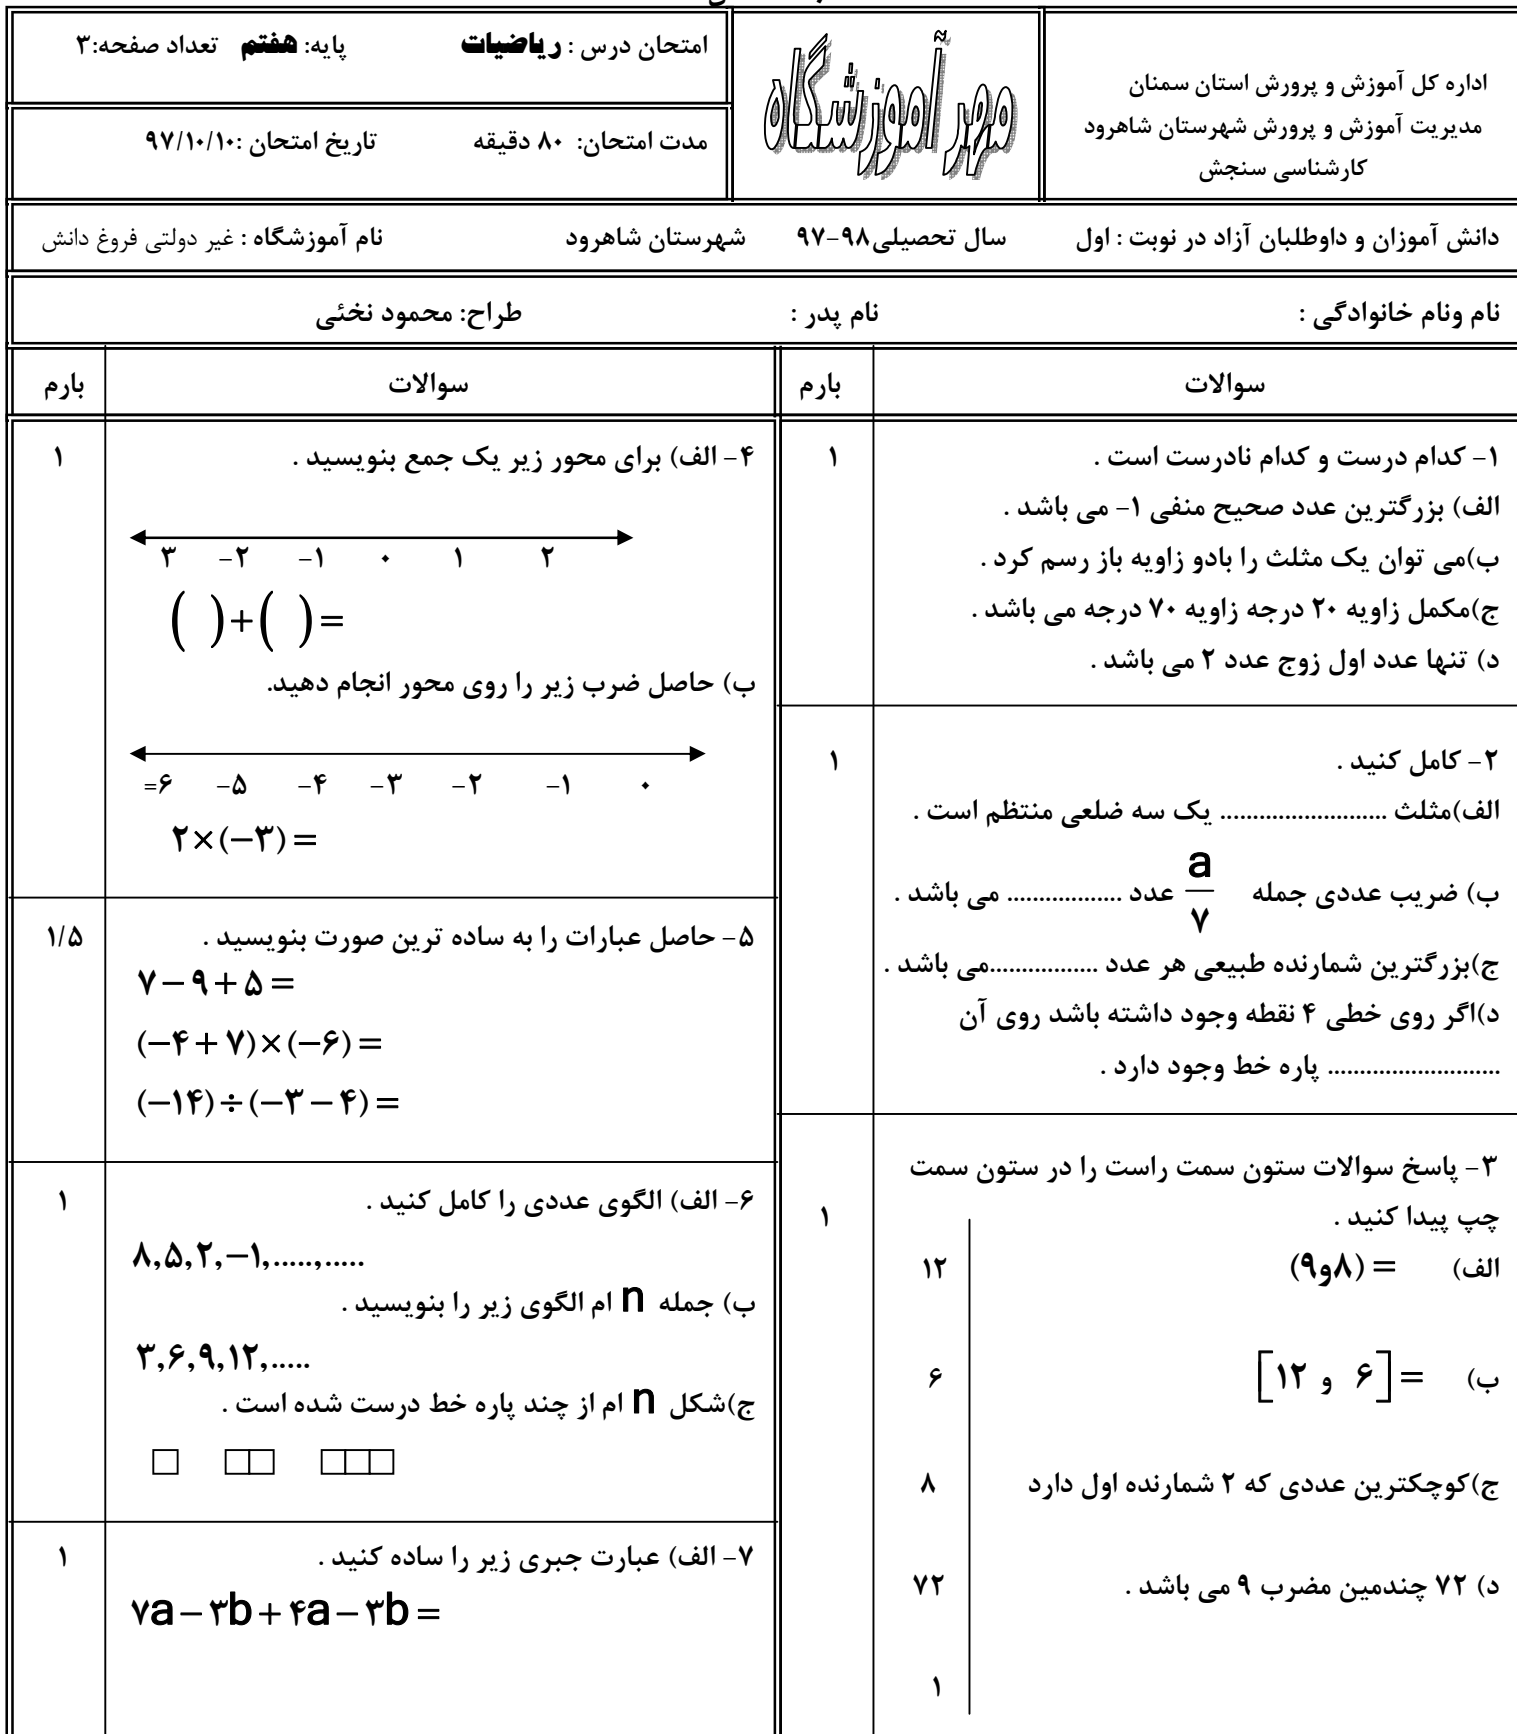 اداره کل آموزش و پرورش استان سمنان
مدیریت آموزش و پرورش شهرستان شاهرود
کارشناسی سنجش
مهر آموزشگاه
امتحان درس : ریاضیات پایه: هفتم تعداد صفحه:۳
مدت امتحان: ۸۰ دقیقه تاریخ امتحان :۹۷/۱۰/۱۰
دانش آموزان و داوطلبان آزاد در نوبت : اول سال تحصیلی۹۸-۹۷ شهرستان شاهرود نام آموزشگاه : غیر دولتی فروغ دانش
نام ونام خانوادگی : نام پدر : طراح: محمود نخئی
سوالات بارم
۱- کدام درست و کدام نادرست است . ۱
الف) بزرگترین عدد صحیح منفی ۱- می باشد .
ب)می توان یک مثلث را بادو زاویه باز رسم کرد .
ج)مکمل زاویه ۲۰ درجه زاویه ۷۰ درجه می باشد .
د) تنها عدد اول زوج عدد ۲ می باشد .
۲- کامل کنید . ۱
الف)مثلث .......................... یک سه ضلعی منتظم است .
ب) ضریب عددی جمله a/۷ عدد .................. می باشد .
ج)بزرگترین شمارنده طبیعی هر عدد .................می باشد .
د)اگر روی خطی ۴ نقطه وجود داشته باشد روی آن
........................... پاره خط وجود دارد .
۳- پاسخ سوالات ستون سمت راست را در ستون سمت
چپ پیدا کنید . ۱
الف) (۹و۸) = ۱۲
ب) [۱۲ و ۶] = ۶
ج)کوچکترین عددی که ۲ شمارنده اول دارد ۸
د) ۷۲ چندمین مضرب ۹ می باشد . ۷۲
۱
سوالات بارم
۴- الف) برای محور زیر یک جمع بنویسید . ۱
۳ -۲ -۱ ۰ ۱ ۲
( )+( )=
ب) حاصل ضرب زیر را روی محور انجام دهید.
=۶ -۵ -۴ -۳ -۲ -۱ ۰
۲×(-۳)=
۵- حاصل عبارات را به ساده ترین صورت بنویسید . ۱/۵
۷-۹+۵=
(-۴+۷)×(-۶)=
(-۱۴)÷(-۳-۴)=
۶- الف) الگوی عددی را کامل کنید . ۱
۸,۵,۲,-۱,.....,.....
ب) جمله n ام الگوی زیر را بنویسید .
۳,۶,۹,۱۲,.....
ج)شکل n ام از چند پاره خط درست شده است .
۷- الف) عبارت جبری زیر را ساده کنید . ۱
۷a-۳b+۴a-۳b=